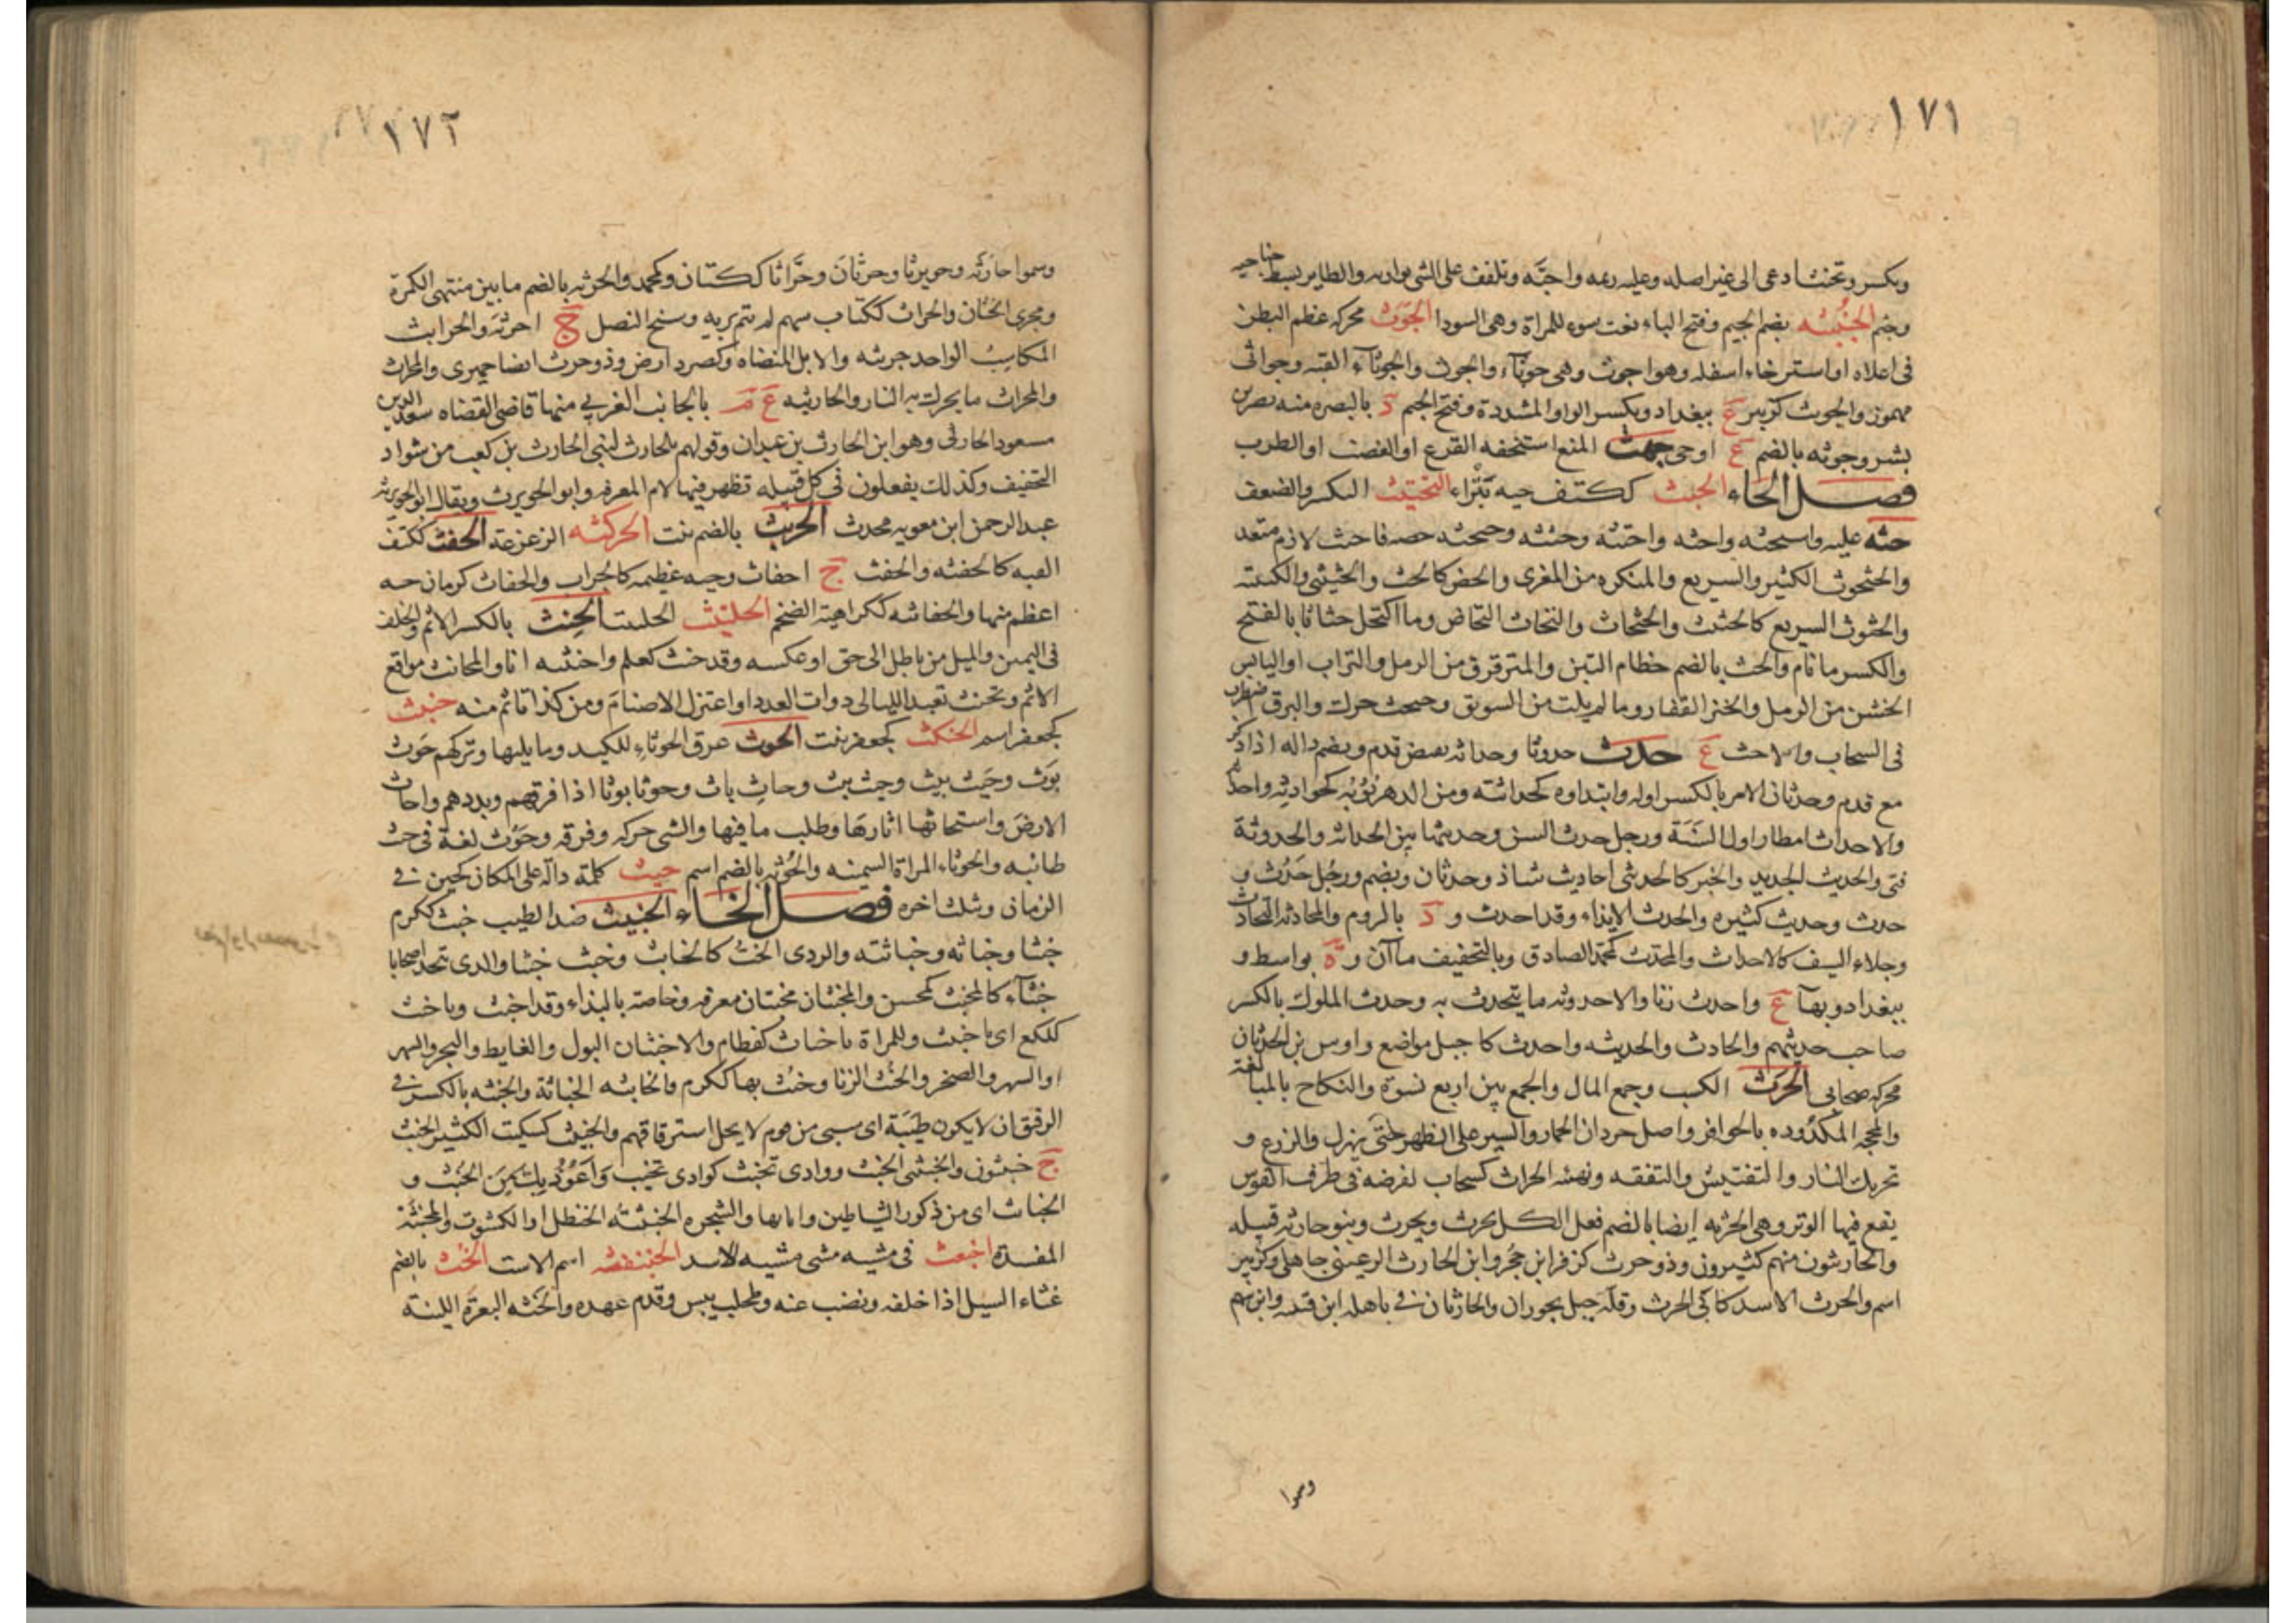 ١٧١
ويكسر وتحنث ادعى الى غير اصله وعليه رئمه واحبّه وتلفف على الشى يواريه والطاير بسط جناحيه
وجثم الجُنْبُثه بضم الجيم وفتح الباء نعت سوء للمراة وهى السودا الجَوَث محركه عظم البطن
فى اعلاه او استرخاء اسفله وهو اجوث وهى جوثآء والجوث والجوثآء القبه وجواثى
مهموز والجويث كزبير ع ببغداد وبكسر الواو المشددة وفتح الجيم د بالبصره منه نصر بن
بشر وجوثه بالضم ع او حى جهث المنع استخفه الفزع او الغضب او الطرب
فصل الحاء الحبث ككتف حيه بَتْراء التحتيث التكسر والضعف
حثه عليه واستحثه واحثه واحتثه وحثثه وحثحثه حضه فاحتث لازم متعد
والحثحوث الكثير والسريع والمنكره من المعزى والحض كالحث والحثيثى والكتيبه
والحثوث السريع كالحثيث والحثحاث والتحاث التحاض وما اكتحل حثاثا بالفتح
والكسر ما نام والحث بالضم حطام التبن والمترقرق من الرمل والتراب او اليابس
الخشن من الرمل والخبز القفار وما لم يلت من السويق وحثحث حرك والبرق اضطرب
فى السحاب والاحث ع حدث حدوثا وحداثه نقيض قدم ويضم داله اذا ذكر
مع قدم وحدثان الامر بالكسر اوله وابتداوه كحداثته ومن الدهر نُوَبُه كحوادثه واحداثه
والاحداث امطار اول السَنَة ورجل حدث السن وحديثها بين الحداثه والحدوثة
فتى والحديث الجديد والخبر كالحدثى احاديث شاذ وحدثان ويضم ورجل حَدُث و
حدث وحديث كثيره والحدث الابداء وقد احدث و د بالروم والمحادثه التحادث
وجلاء السيف كالاحداث والمحدث كمحمد الصادق وبالتخفيف ماآن و ة بواسط و
ببغداد وبهآ ع واحدث زنا والاحدوثه ما يتحدث به وحدث الملوك بالكسر
صاحب حديثهم والحادث والحديثه واحدث كاجبل مواضع واوس بن الحدثان
محركه صحابى الحرث الكسب وجمع المال والجمع بين اربع نسوة والنكاح بالمبالغة
والمحجه المكدوده بالحوافر واصل جردان الحمار والسير على الظهر حتى يهزل والزرع و
تحريك النار والتفتيش والتفقه وتهيئه الحراث كسحاب لفرضه فى طرف القوس
يقع فيها الوتر وهى الحرثه ايضا بالضم فعل الكل يحرث ويحرث وبنو حارثه قبيله
والحارثون منهم كثيرون وذو حرث كزفر ابن حجر وابن الحارث الرعينى جاهلى وكزبير
اسم والحرث الاسد كابى الحرث وقله جبل بحوران والحارثان فى باهله ابن قتيبه وابن سهم
وسموا
١٧٢
وسموا حارثه وحويرثا وحرثان وحرَّاثا ككتان وكمحمد والحرثه بالضم ما بين منتهى الكمرة
ومجرى الختان والحراث ككتاب سهم لم يتم بريه وسنخ النصل ج احرثه والحرايث
المكاسِب الواحد حريثه والابل المنضاه وكصرد ارض وذو حرث ايضا حميرى والمحرث
والمحراث ما يحرك به النار والحارثيه ع م بالجانب الغربى منها قاضى القضاه سعد الدين
مسعود الحارثى وهو ابن الحارث بن عيدان وقولهم بلحارث لبنى الحارث بن كعب من شواذ
التخفيف وكذلك يفعلون فى كل قبيله تظهر فيها لام المعرفه وابو الحويرث ويقال ابو الحويرثه
عبد الرحمن ابن معويه محدث الحربث بالضم نبت الحركثه الزعزعة الحفث ككتف
القبه كالحفثه والحفث ج احفاث وحيه عظيمه كالجراب والحفاث كرمان حيه
اعظم منها والحفاثيه ككراهيه الضخم الحلتيث الحلتيت الحِنث بالكسر الاثم والخلف
فى اليمين والميل من باطل الى حق او عكسه وقد حنث كعلم واحنثه انا والمحانث مواقع
الاثم وتحنث تعبد الليالى ذوات العدد او اعتزل الاصنام ومن كذا تاثم منه حنبث
كجعفر اسم الحنكث كجعفر نبت الحوث عرق الحوثاء للكبد وما يليها وتركهم حَوث
بَوَث وحَيث بيث وحيث بيث وحاثِ باث وحوثا بوثا اذا فرقهم وبددهم واحاث
الارض واستحاثها اثارها وطلب ما فيها والشى حركه وفرقه وحَوْث لغة فى حيث
طائيه والحوثاء المراة السمينه والحُوثه بالضم اسم حيث كلمة دالة على المكان كحين فى
الزمان ويثلث اخره فصل الخاء الخبيث ضد الطيب خبث ككرم
خبثا وخباثه وخباثته والردى الخب كالخابث وخبث خبثا والذى يتخذ اصحابا
خبثآء كالمخبث كمحسن والمخبثان مخبثان معرفه وخاصه بالنداء وقد اخبث ويا خبث
كلكع اى يا خبيث وللمراة يا خباث كقطام والاخبثان البول والغايط والبخر والسهر
او السهر والضجر والخُبث الزنا وخبث بها ككرم والخابثه الخباثة والخبثه بالكسر فى
الرقيق ان لا يكون طِيَبَة اى سبى من قوم لا يحل استرقاقهم والخبيث كسكيت الكثير الخبث
ج خبيثون والخبيثى الخبث ووادى تخبث كوادى تخيب وَاَعُوذُ بِك مِنَ الخُبث و
الخبائث اى من ذكور الشياطين واناثها والشجره الخبيثه الحنظل او الكشوث والمخبثَة
المفسدة اخبعث فى مشيه مشى مشيه الاسد الخبنفثه اسم الاست الخث بالضم
غثاء السيل اذا خلفه ونضب عنه وطحلب يبس وقدم عهده والخثه البعرة اللينة